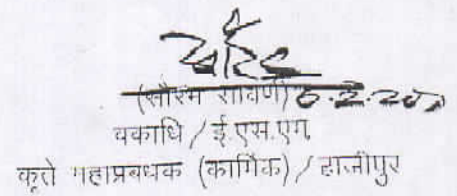 (सौरभ सावर्ण) 6.2.20
वकाधि / ई.एस.एम.
कृते महाप्रबंधक (कार्मिक) / हाजीपुर